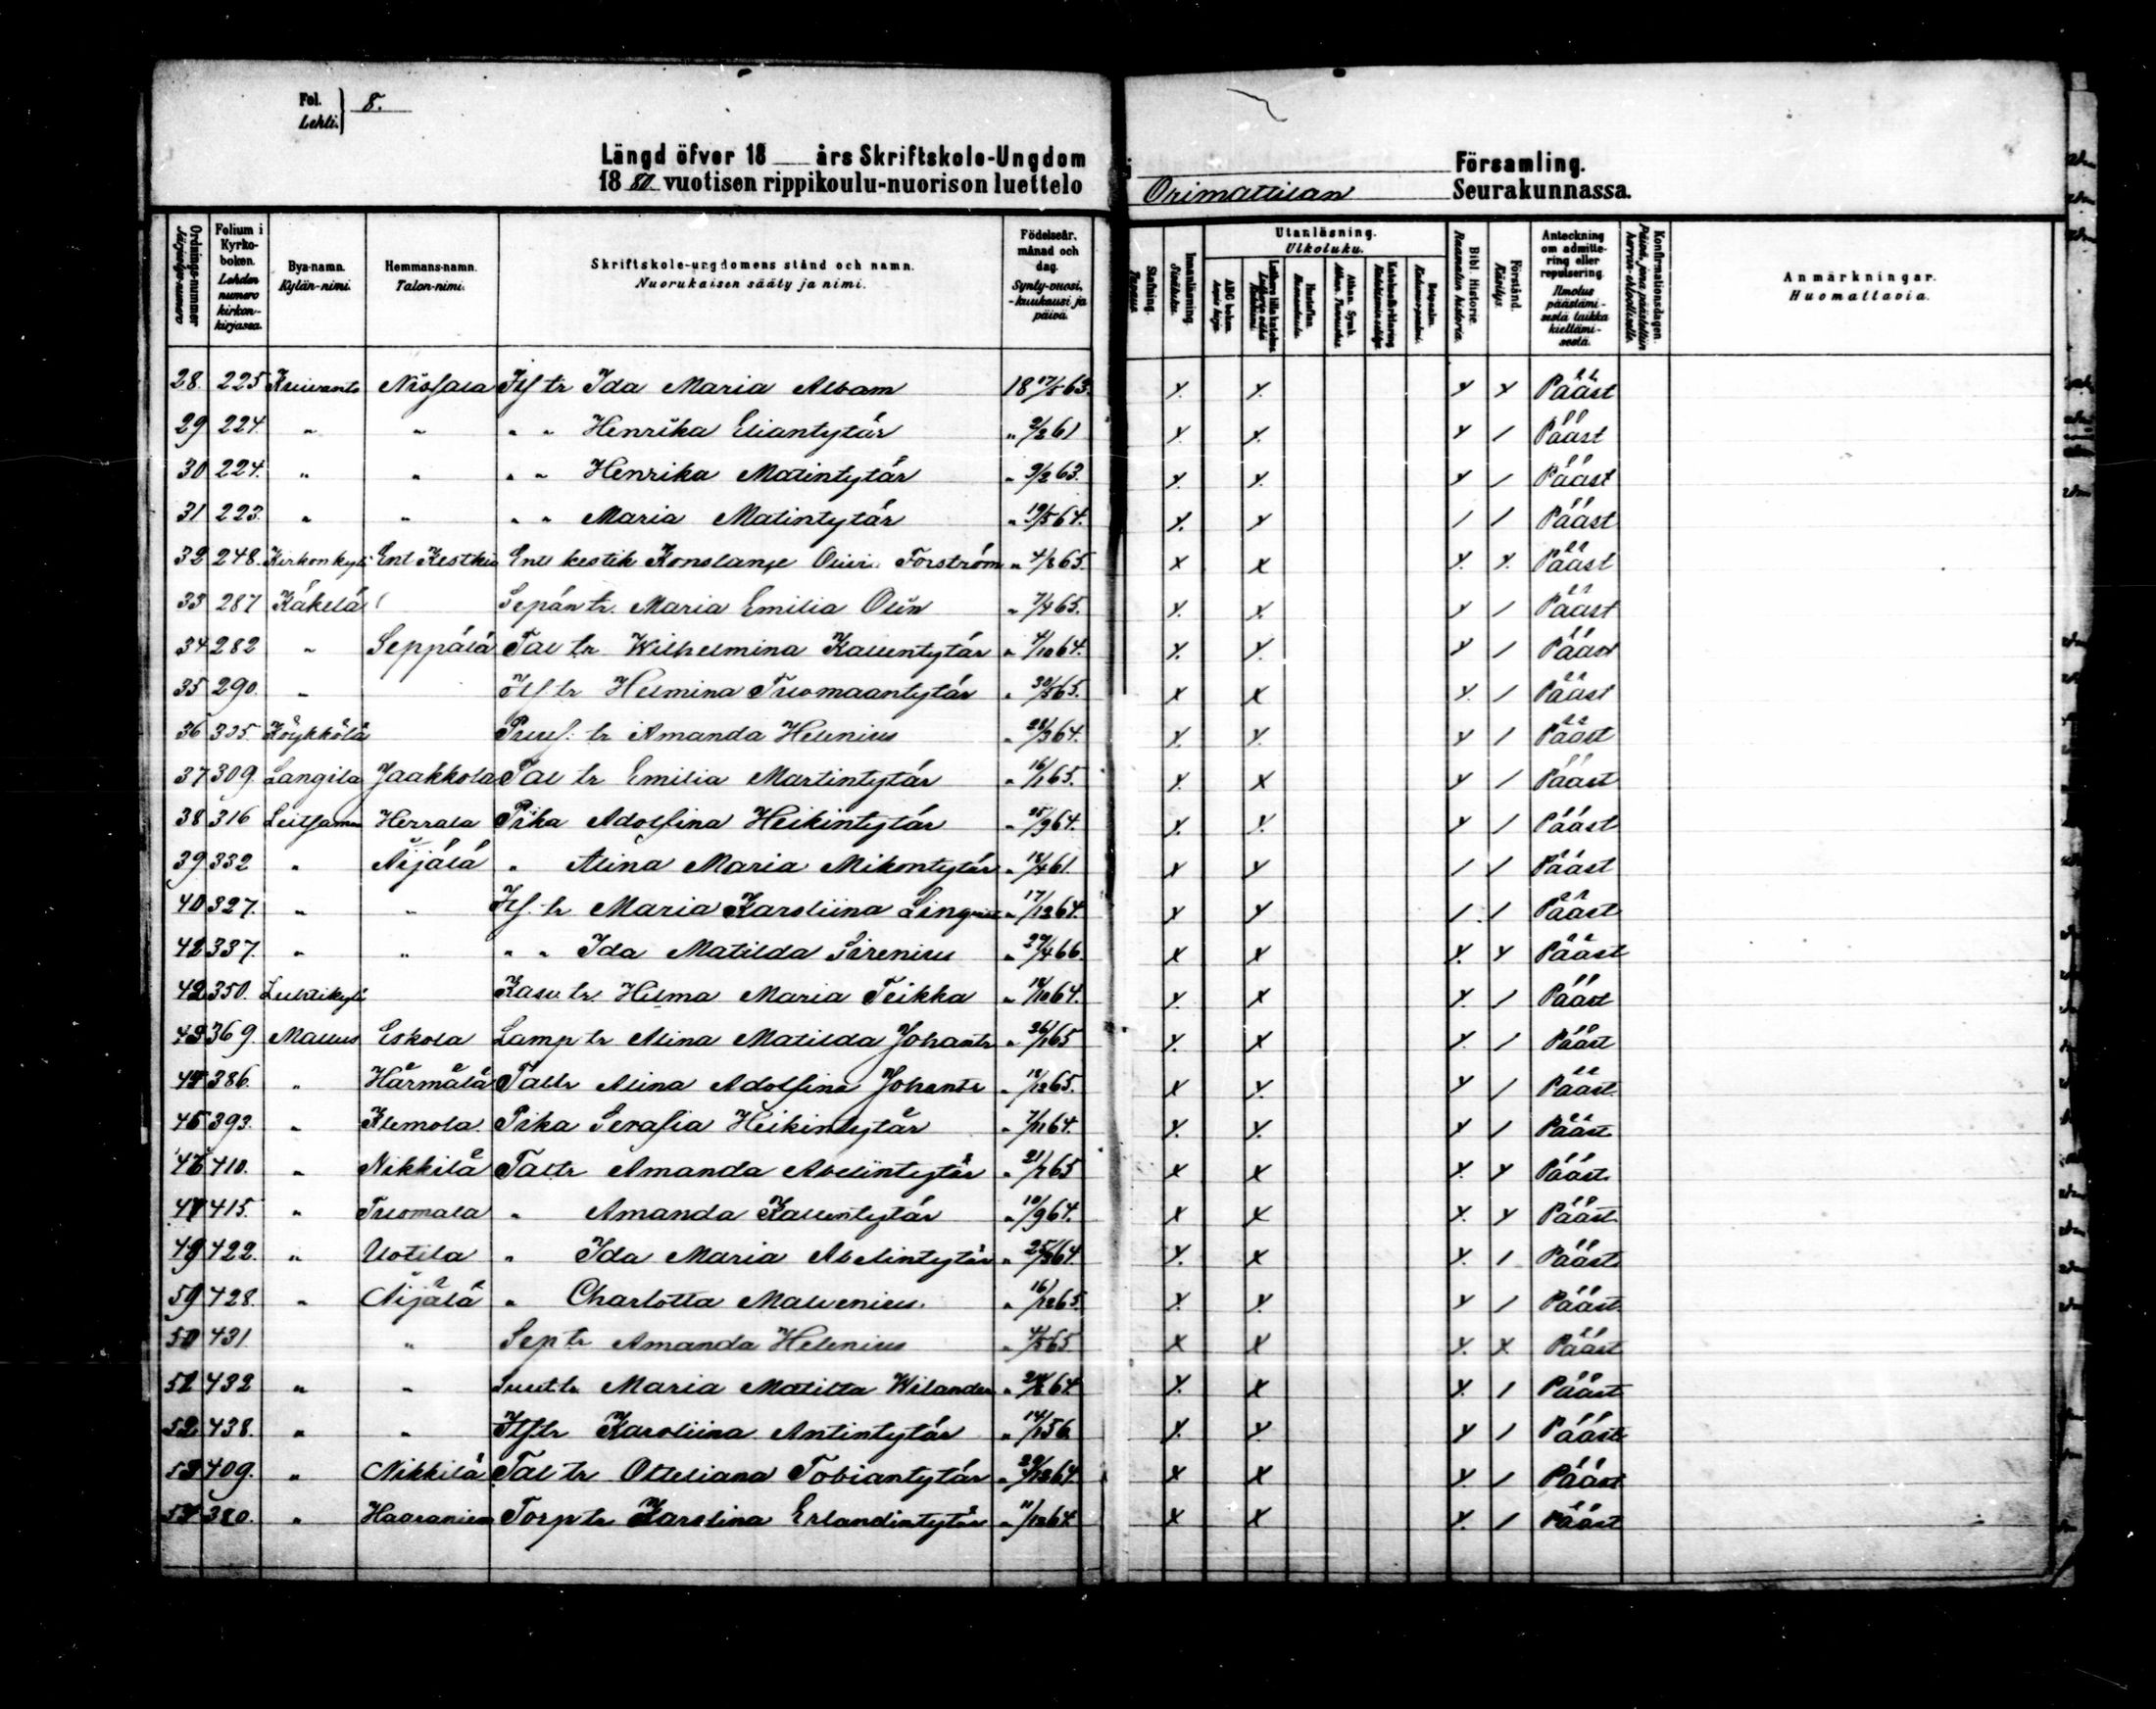 Fol. Lehti. } 8.
Längd öfver 18 års Skriftskole-Ungdom i Församling.
18 80 vuotisen rippikoulu-nuorison luettelo Orimattilan Seurakunnassa.
Ordnings-nummer Järjestys-numero
Folium i Kyrko-boken. Lehden numero kirkon-kirjassa.
Bya-namn. Kylän-nimi.
Hemmans-namn. Talon-nimi.
Skriftskole-ungdomens stånd och namn. Nuorukaisen sääty ja nimi.
Födelseår, månad och dag. Synty-vuosi, -kuukausi ja päivä.
Stafning. Tavaus.
Innanläsning. Sisäluku.
Utanläsning. Ulkoluku.
ABC boken. Aapis kirja.
Luthers lilla kateches
Hustaflan. Huoneentaulu.
Athan. Symb. Athan. Tunnustus.
Katekesförklaring
Botpsalm. Katumus-psalmi.
Bibl. Historie. Raamatun historia.
Förstånd. Käsitys.
Anteckning om admitte-ring eller repulsering. Ilmotus päästämi-sestä taikka kieltämi-sestä.
Konfirmationsdagen.
Anmärkningar. Huomattavia.
28. 225 Kuivanto Nissala Its tr Ida Maria Albom 18 17/5 63. x x x x Pääst
29 224. " " " " Henrika Eliantytär " 2/2 61 x x x / Pääst
30 224. " " " " Henrika Matintytär " 9/2 63. x x x / Pääst
31 223. " " " " Maria Matintytär " 19/5 64. x x / / Pääst
32 248. Kirkonkyl Ent Kestkiv Ent kestik Konstanse Forström " 4/8 65. x x x x Pääst
33 287 Käkelä Sepän tr. Maria Emilia Olin " 7/4 65. x x x / Pääst
34 282 " Seppälä Tal tr Wilhelmina Kallentytär " 4/10 64. x x x / Pääst
35 290. " Its. tr Helmina Tuomaantytär " 30/5 65. x x x / Pääst
36 305 Köykkölä Puus. tr Amanda Helenius " 28/3 64. x x x / Pääst
37 309. Langila Jaakkola Tal tr Emilia Martintytär " 16/1 65. x x x / Pääst
38 316 Leitsamm Herrala Pika Adolfina Heikintytär " 25/9 64. x x x / Pääst
39 332 " Äijälä " Alina Maria Mikontytär " 18/4 61. x x / / Pääst
40 327. " " Its. tr Maria Karoliina Linqvist " 17/12 64. x x / / Pääst
42 337. " " " " Ida Matilda Sirenius " 29/4 66. x x x x Pääst
42 350. Luhtikyl Kasv. tr Hilma Maria Teikka " 18/10 64. x x x / Pääst
43 369. Mallus Eskola Lamp tr Alina Matilda Johantr " 26/1 65 x x x / Pääst
44 386. " Härmälä Taltr Alina Adolfina Johantr " 18/12 65. x x x / Pääst
45 393. " Klemola Pika Serafia Heikintytär " 7/11 64. x x x / Pääst
46 410. " Nikkilä Taltr Amanda Abelintytär " 21/7 65 x x x x Pääst
47 415. " Tuomala " Amanda Kallentytär " 10/9 64. x x x x Pääst
49 422. " Uotila " Ida Maria Abelintytär " 25/3 64. x x x / Pääst
59 428. " Äijälä " Charlotta Malvenius. " 16/12 65. x x x / Pääst
50 431 " Sep tr Amanda Helenius " 4/5 65 x x x x Pääst
51 432 " " Suut tr Maria Matilta Wilander " 24/8 64 x x x / Pääst
52 438. " " Its tr Karoliina Antintytär " 14/1 56 x x x / Pääst
53 409. " Nikkilä Tal tr Otteliana Tobiantytär " 29/12 64. x x x / Pääst
54 380. " Haaraniem Torp tr Karolina Erlandintytär " 11/12 64 x x x / Pääst